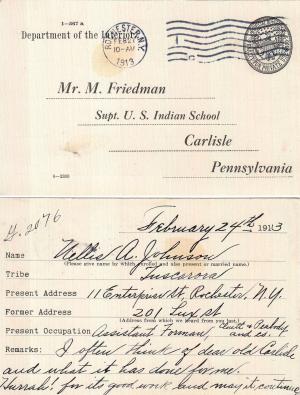 1-267 a
Department of the Interior
ROCHESTER, N.Y.
FEB 27
10-AM
1913
Mr. M. Friedman
Supt. U. S. Indian School
Carlisle
Pennsylvania
February 24th 1913
Name Nellis A. Johnson
(Please give name by which enrolled and also present or married name.)
Tribe Tuscarora
Present Address 11 Enterprise St, Rochester, N.Y.
Former Address 201 Lux st
(Address from which we heard from you last.)
Present Occupation Assistant Forman, Cluett & Peabody and co.
Remarks: I often think of dear old Carlisle
and what it has done for me.
Hurrah! for its good work and may it continue